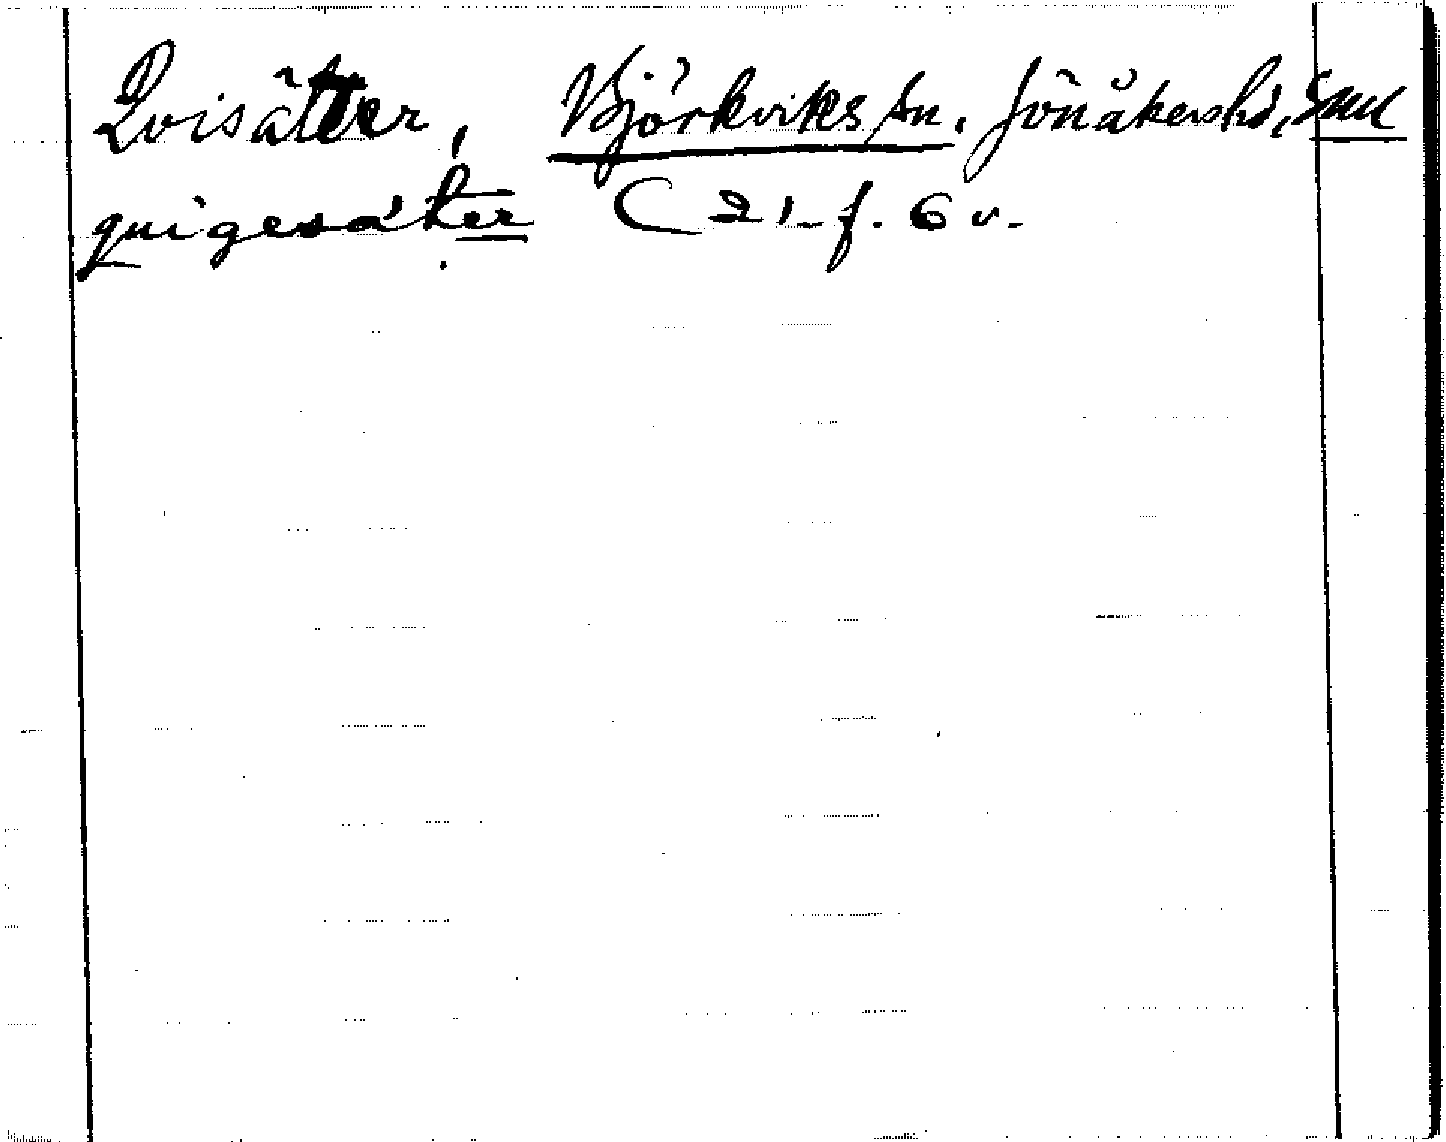 Qvisätter, Björkviks sn. Jönåkershd, Sml
quigesäter C 21 f. 6 v.